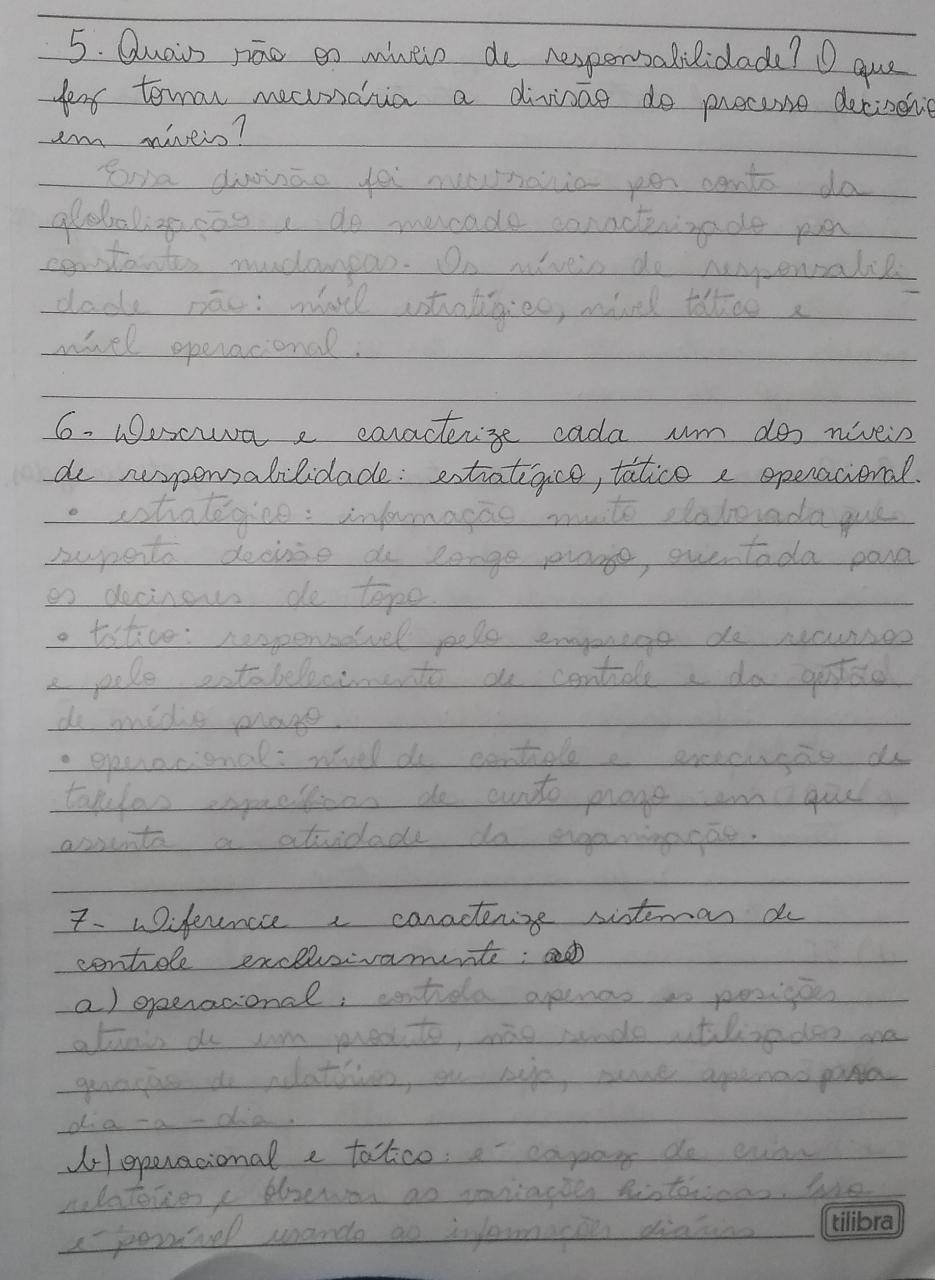 5. Quais são os níveis de responsabilidade? O que
fez tornar necessária a divisão do processo decisório
em níveis?
Essa divisão foi necessária por conta da
globalização e do mercado caracterizado por
constantes mudanças. Os níveis de responsabili-
dade são: nível estratégico, nível tático e
nível operacional.
6- Descreva e caracterize cada um dos níveis
de responsabilidade: estratégico, tático e operacional.
• estratégico: informação muito elaborada que
suporta decisão de longo prazo, orientada para
os decisores de topo.
• tático: responsável pelo emprego de recursos
e pelo estabelecimento de controle e da gestão
de médio prazo.
• operacional: nível de controle e execução de
tarefas específicas de curto prazo em que
assenta a atividade da organização.
7- Diferencie e caracterize sistemas de
controle exclusivamente:
a) operacional: controla apenas as posições
atuais de um produto, não sendo utilizados na
geração de relatórios, ou seja, serve apenas para
dia-a-dia.
b) operacional e tático: é capaz de criar
relatórios e observar as variações históricas. Isso
é possível usando as informações diárias
tilibra